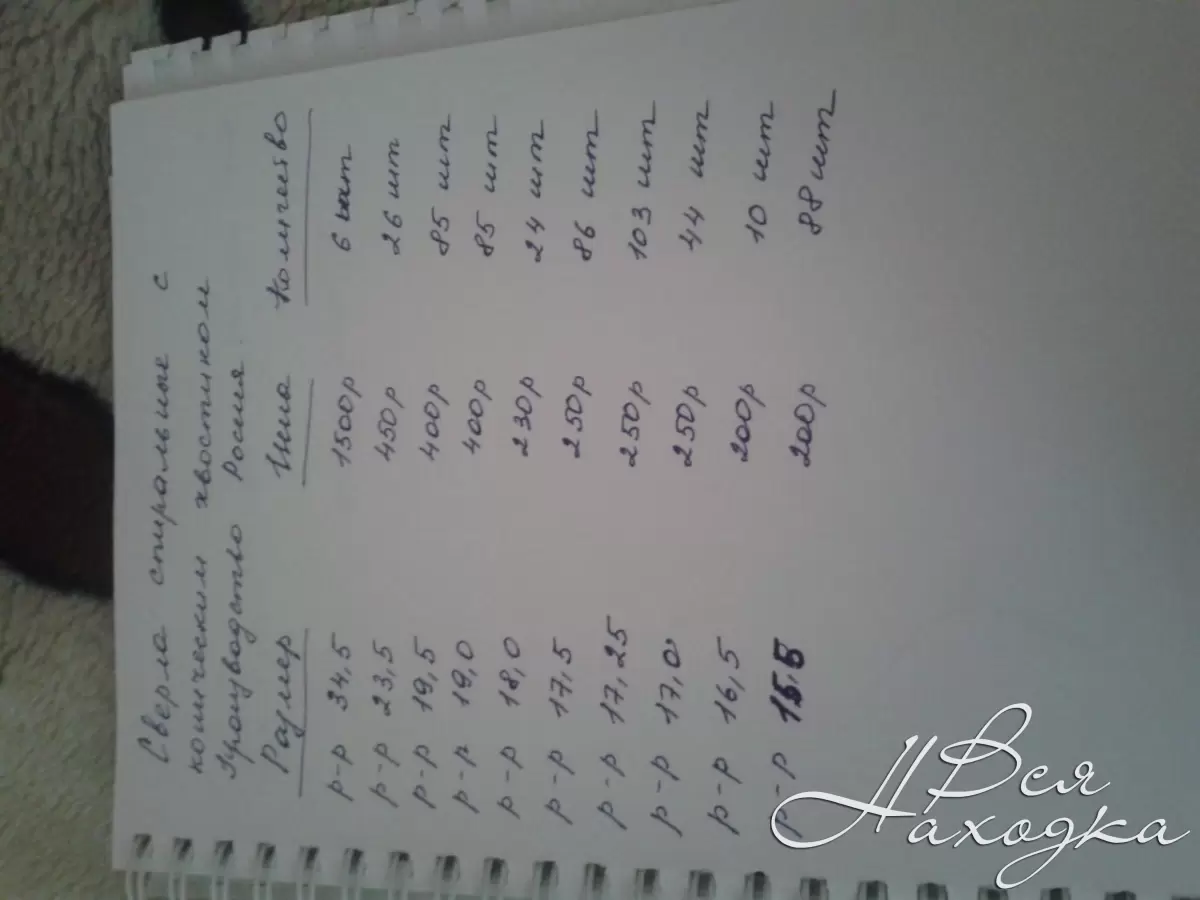 Сверла спиральные с
коническим хвостиком
Производство Россия.
Размер Цена Количество
р-р 34,5 1500р 6 шт
р-р 23,5 450р 26 шт
р-р 19,5 400р 85 шт
р-р 19,0 400р 85 шт
р-р 18,0 230р 24 шт
р-р 17,5 250р 86 шт
р-р 17,25 250р 103 шт
р-р 17,0 250р 44 шт
р-р 16,5 200р 10 шт
р-р 15,5 200р 88 шт
Вся
Находка